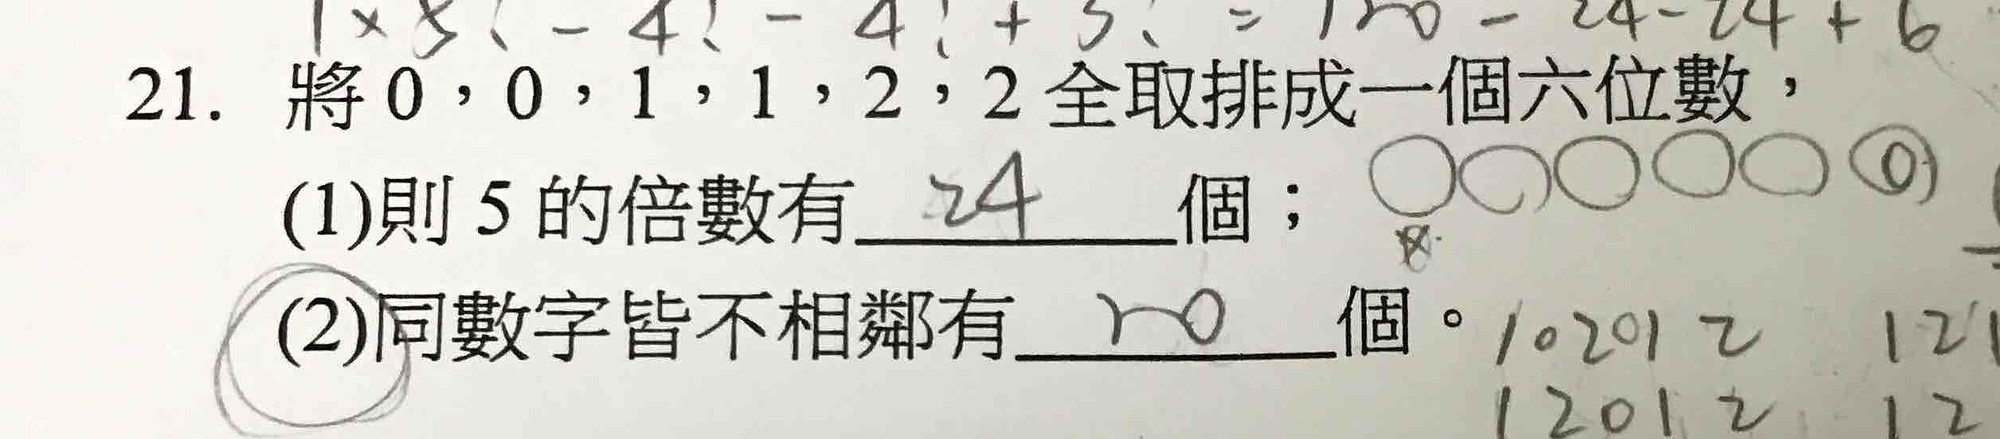 1×5! - 4! - 4! + 3! = 120 - 24 - 24 + 6
21. 將0，0，1，1，2，2全取排成一個六位數，
(1)則5的倍數有 24 個；
0
(2)同數字皆不相鄰有 20 個。
10201 2 121
1201 2 12